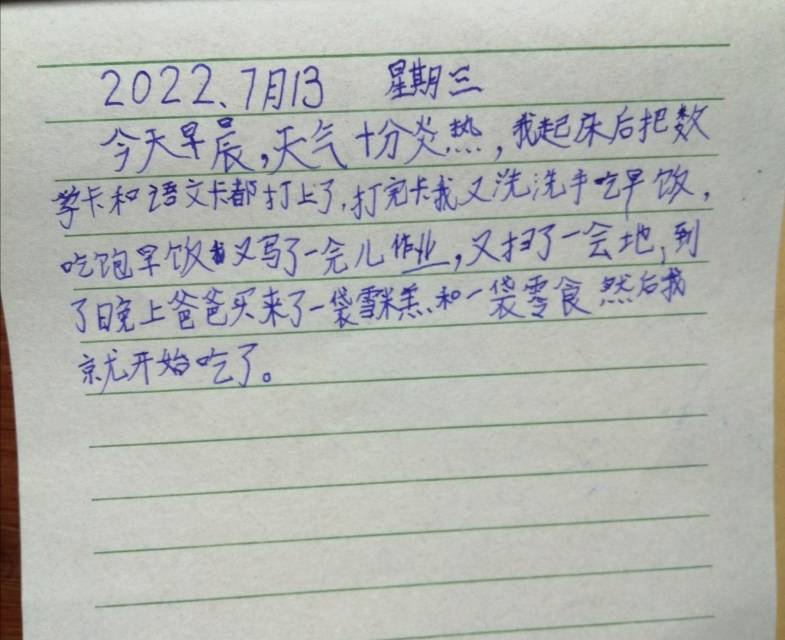 2022、7月13 星期三
今天早晨,天气十分炎热,我起床后把数
学卡和语文卡都打上了,打完卡我又洗洗手吃早饭,
吃饱早饭又写了一完儿作业,又扫了一会地,到
了晚上爸爸买来了一袋雪米羔、和一袋零食 然后我
就开始吃了。